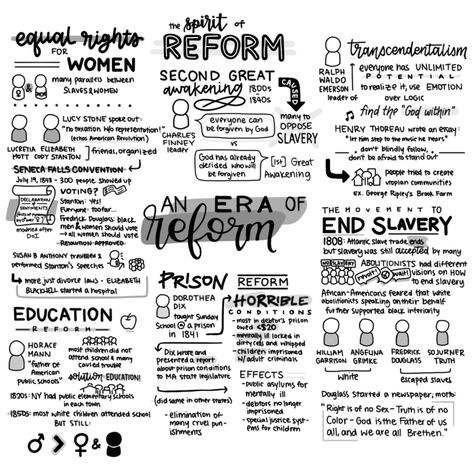 equal rights
FOR
WOMEN
many parallels between
SLAVES & WOMEN
LUCY STONE spoke out:
"no taxation w/o representation!"
(echos American Revolution)
LUCRETIA MOTT
ELIZABETH CADY STANTON
friends, organized
SENECA FALLS CONVENTION
July 19, 1848 - 300 people showed up
DECLARATION
modified after
D.I.
VOTING?
Stanton: Yes!
Everyone:
Fredrick Douglas: black
men & women should vote
→ all women should vote
RESOLUTION APPROVED
SUSAN B ANTHONY traveled &
performed Stanton's speeches
→ more just divorce laws · ELIZABETH
BLACKWELL started a hospital
EDUCATION
REFORM
HORACE
MANN
"father of
American
public schools"
most children did not
attend school & many
carried trouble
solution: EDUCATION!
1820s: NY had public elementary schools
in each town
1850s: most white children attended school
BUT STILL:
♂ > ♀ &
the spirit of
REFORM
SECOND GREAT
awakening
1800s
1840s
CAUSED
many to
OPPOSE
SLAVERY
CHARLES
FINNEY
leader
everyone can
be forgiven by God
vs
God has already
decided who will
be forgiven
[1st] Great
Awakening
AN ERA OF
reform
PRISON
REFORM
DOROTHEA
DIX
taught Sunday
School @ a prison
in 1841
Dix wrote and
presented a report
about prison conditions
to MA state legislature
(did same in other states)
- elimination of
many cruel pun-
ishments
HORRIBLE
CONDITIONS
- most in debtor's prison
owed <$20
- mentally ill locked in
dirty cells and whipped
- children imprisoned
w/ adult criminals
EFFECTS
- public asylums for
mentally ill
- debtors no longer
imprisoned
- special justice syst-
ems for children
transcendentalism
RALPH
WALDO
EMERSON
leader of
everyone has UNLIMITED
POTENTIAL
to realize it, use EMOTION
over LOGIC
find the "God within"
HENRY THOREAU wrote an essay:
"let him step to the music he hears"
- don't blindly follow,
don't be afraid to stand out
people tried to create
utopian communities
ex. George Ripley's Brook Farm
THE MOVEMENT TO
END SLAVERY
1808: Atlantic slave trade ends
but slavery was still accepted by many
ABOLITIONISTS had different
visions on HOW
to end slavery
African-Americans feared that white
abolitionists speaking on their behalf
further supported black inferiority
WILLIAM
GARRISON
ANGELINA
GRIMKE
FREDRICK
DOUGLASS
SOJOURNER
TRUTH
white
escaped slaves
Douglass started a newspaper, motto:
"Right is of no Sex - Truth is of no
Color - God is the Father of us
all, and we are all Brethren."